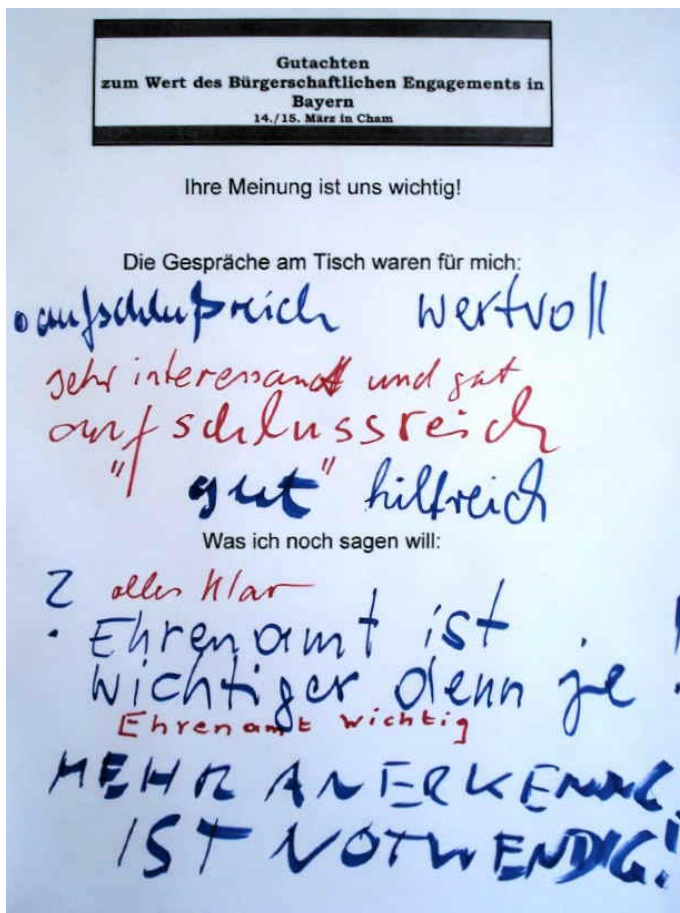 Gutachten
zum Wert des Bürgerschaftlichen Engagements in
Bayern
14./15. März in Cham
Ihre Meinung ist uns wichtig!
Die Gespräche am Tisch waren für mich:
aufschlußreich wertvoll
sehr interessant und gut
aufschlussreich
"gut" hilfreich
Was ich noch sagen will:
alles klar
Ehrenamt ist
wichtiger denn je!
Ehrenamt wichtig
MEHR ANERKENNUNG
IST NOTWENDIG!